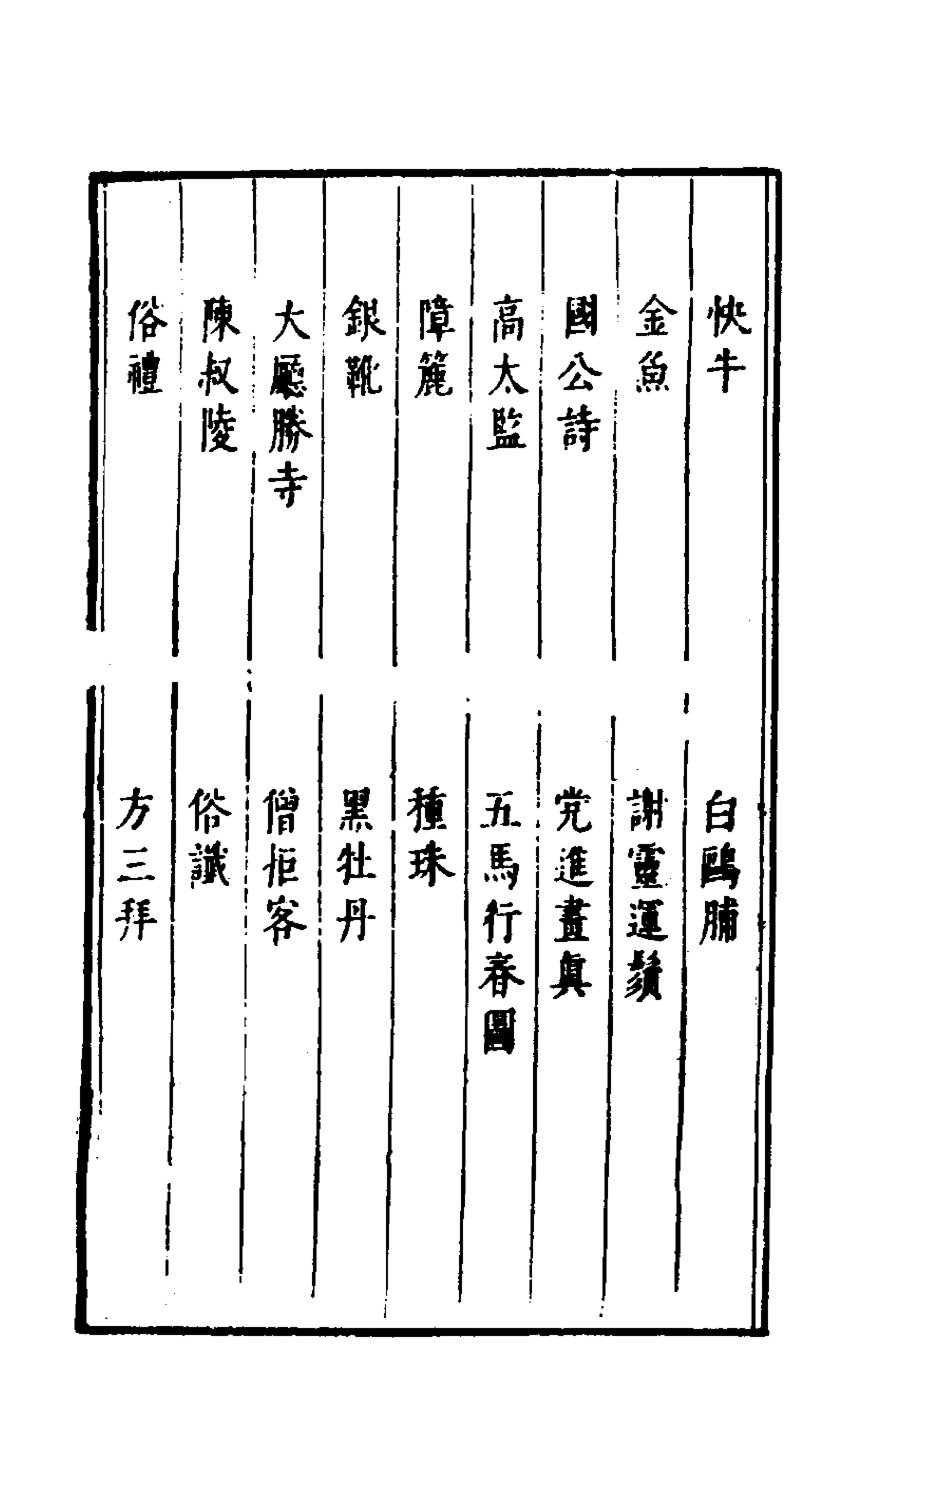 快牛　白鷗脯
金魚　謝靈運鬚
國公詩　党進畫眞
高太監　五馬行春圖
障簏　種珠
銀靴　黑牡丹
大廳勝寺　僧拒客
陳叔陵　俗讖
俗禮　方三拜